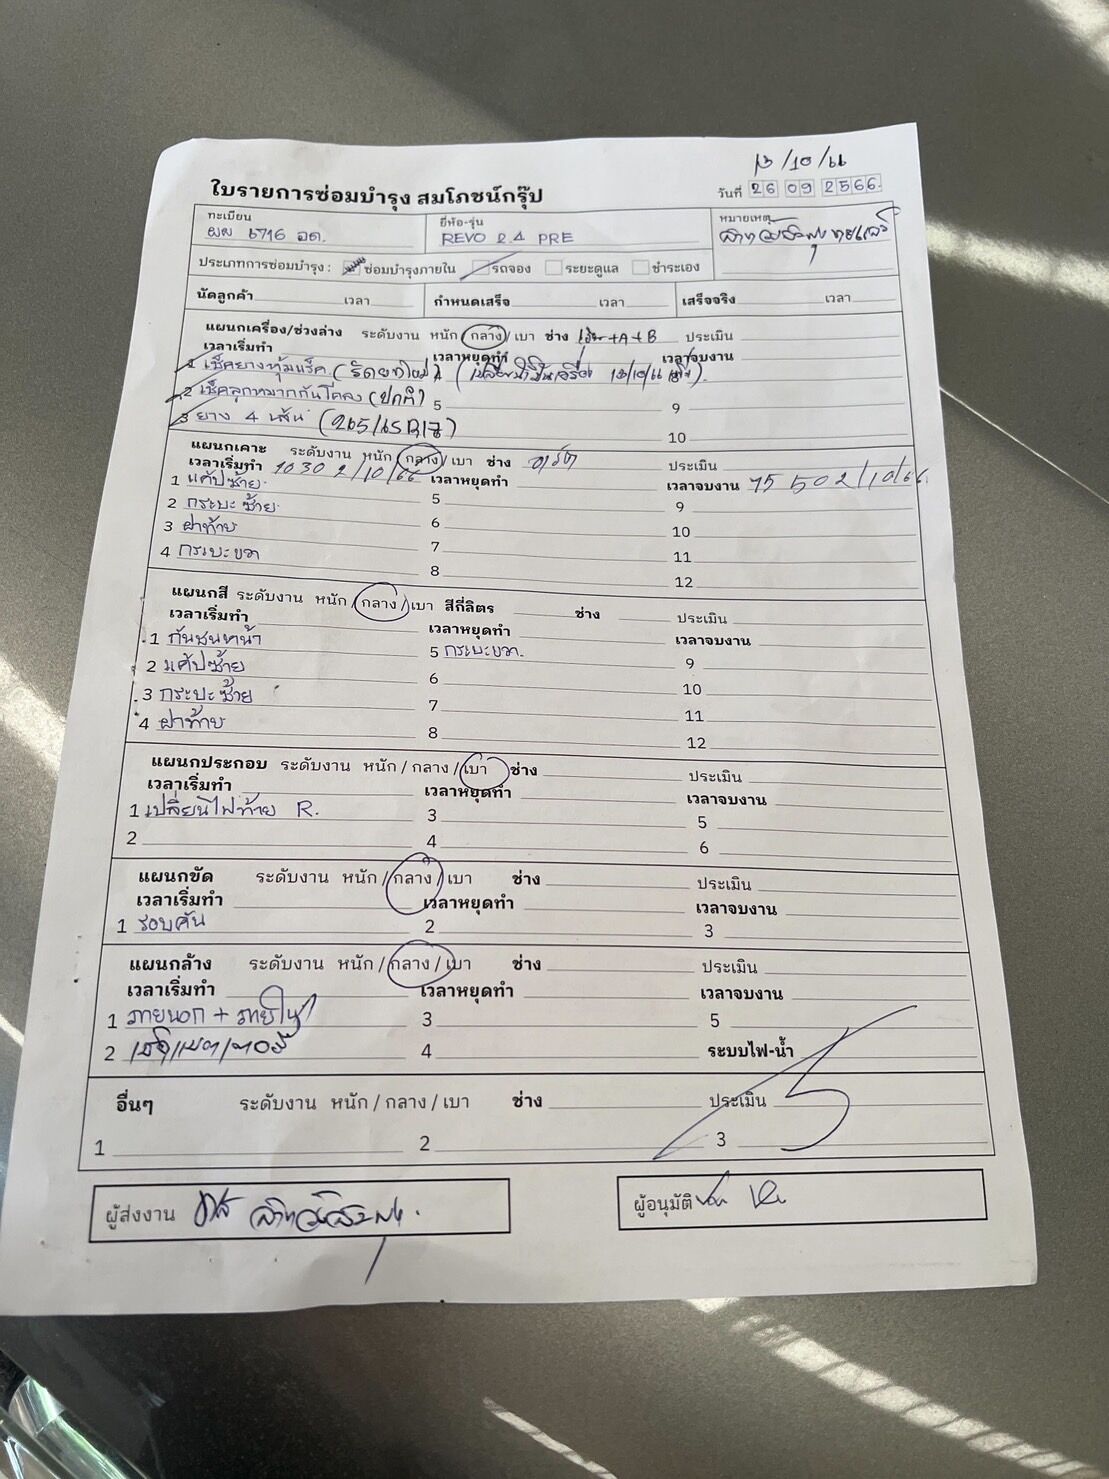 13/10/66
ใบรายการซ่อมบำรุง สมโภชน์กรุ๊ป
วันที่ 26 09 2566
ทะเบียน
ผผ 6716 อด.
ยี่ห้อ-รุ่น
REVO 2.4 PRE
หมายเหตุ
ประเภทการซ่อมบำรุง : ซ่อมบำรุงภายใน รถจอง ระยะดูแล ชำระเอง
นัดลูกค้า เวลา กำหนดเสร็จ เวลา เสร็จจริง เวลา
แผนกเครื่อง/ช่วงล่าง ระดับงาน หนัก / กลาง / เบา ช่าง +A+B ประเมิน
เวลาเริ่มทำ เวลาหยุดทำ เวลาจบงาน
1 เช็คยางหุ้มแร็ค (รัดยางใหม่) 4 (เปลี่ยนน้ำมันเครื่อง 13/10/66)
2 เช็คลูกหมากกันโคลง (ปกติ) 5 9
3 ยาง 4 เส้น (265/65R17) 10
แผนกเคาะ ระดับงาน หนัก / กลาง / เบา ช่าง ประเมิน
เวลาเริ่มทำ 10 30 2/10/66 เวลาหยุดทำ เวลาจบงาน 15 50 2/10/66
1 แค้ปซ้าย 5 9
2 กระบะซ้าย 6 10
3 ฝาท้าย 7 11
4 กระบะขวา 8 12
แผนกสี ระดับงาน หนัก / กลาง / เบา สีกี่ลิตร ช่าง ประเมิน
เวลาเริ่มทำ เวลาหยุดทำ เวลาจบงาน
1 กันชนหน้า 5 กระบะขวา 9
2 แค้ปซ้าย 6 10
3 กระบะซ้าย 7 11
4 ฝาท้าย 8 12
แผนกประกอบ ระดับงาน หนัก / กลาง / เบา ช่าง ประเมิน
เวลาเริ่มทำ เวลาหยุดทำ เวลาจบงาน
1 เปลี่ยนไฟท้าย R. 3 5
2 4 6
แผนกขัด ระดับงาน หนัก / กลาง / เบา ช่าง ประเมิน
เวลาเริ่มทำ เวลาหยุดทำ เวลาจบงาน
1 รอบคัน 2 3
แผนกล้าง ระดับงาน หนัก / กลาง / เบา ช่าง ประเมิน
เวลาเริ่มทำ เวลาหยุดทำ เวลาจบงาน
1 ภายนอก + ภายใน 3 5
2 4 ระบบไฟ-น้ำ
อื่นๆ ระดับงาน หนัก / กลาง / เบา ช่าง ประเมิน
1 2 3
ผู้ส่งงาน ผู้อนุมัติ